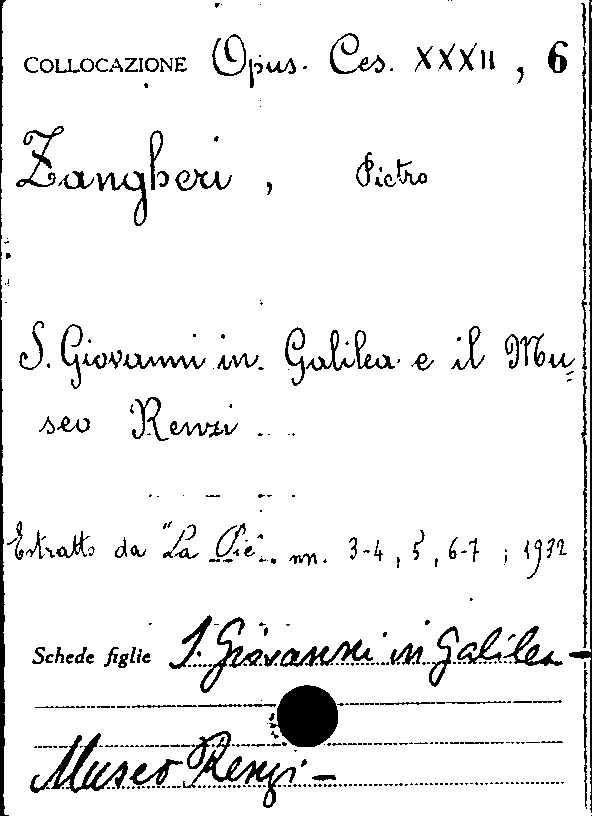 COLLOCAZIONE Opus. Ces. XXXII, 6
Zangheri, Pietro
S. Giovanni in Galilea e il Mu=
seo Renzi
Estratto da "La Piê", nn. 3-4, 5, 6-7; 1932
Schede figlie S. Giovanni in Galilea -
Museo Renzi -